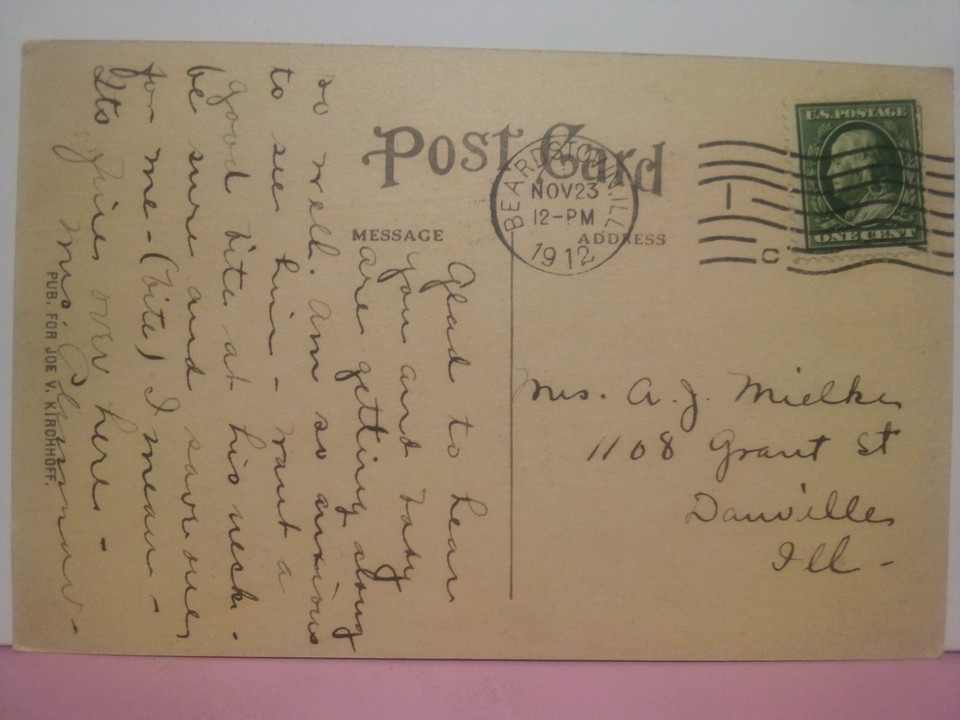 POST CARD
BEARDSTOWN, ILL.
NOV 23
12-PM
1912
C
U.S. POSTAGE
ONE CENT
MESSAGE
ADDRESS
Glad to hear
you and baby
are getting along
so well. Am so anxious
to see him - want a
good bite at his neck.
be sure and save one
for me - (bite) I mean -
Its fine over here -
Mrs.
PUB. FOR JOE V. KIRCHHOFF.
Mrs. A. J. Mielke
1108 Grant St
Danville
Ill -